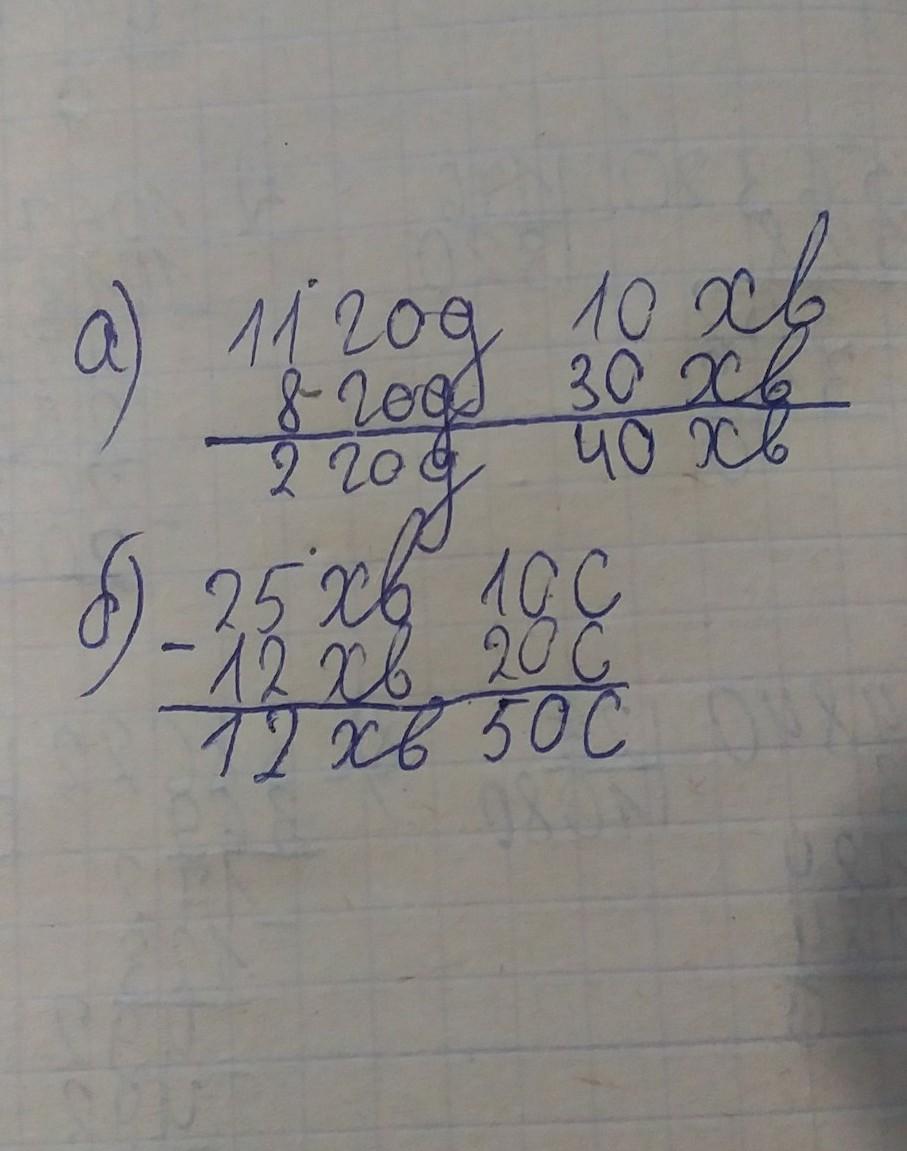 а) 11 год 10 хв
8 год 30 хв
2 год 40 хв
б) 25 хв 10 с
- 12 хв 20 с
12 хв 50 с